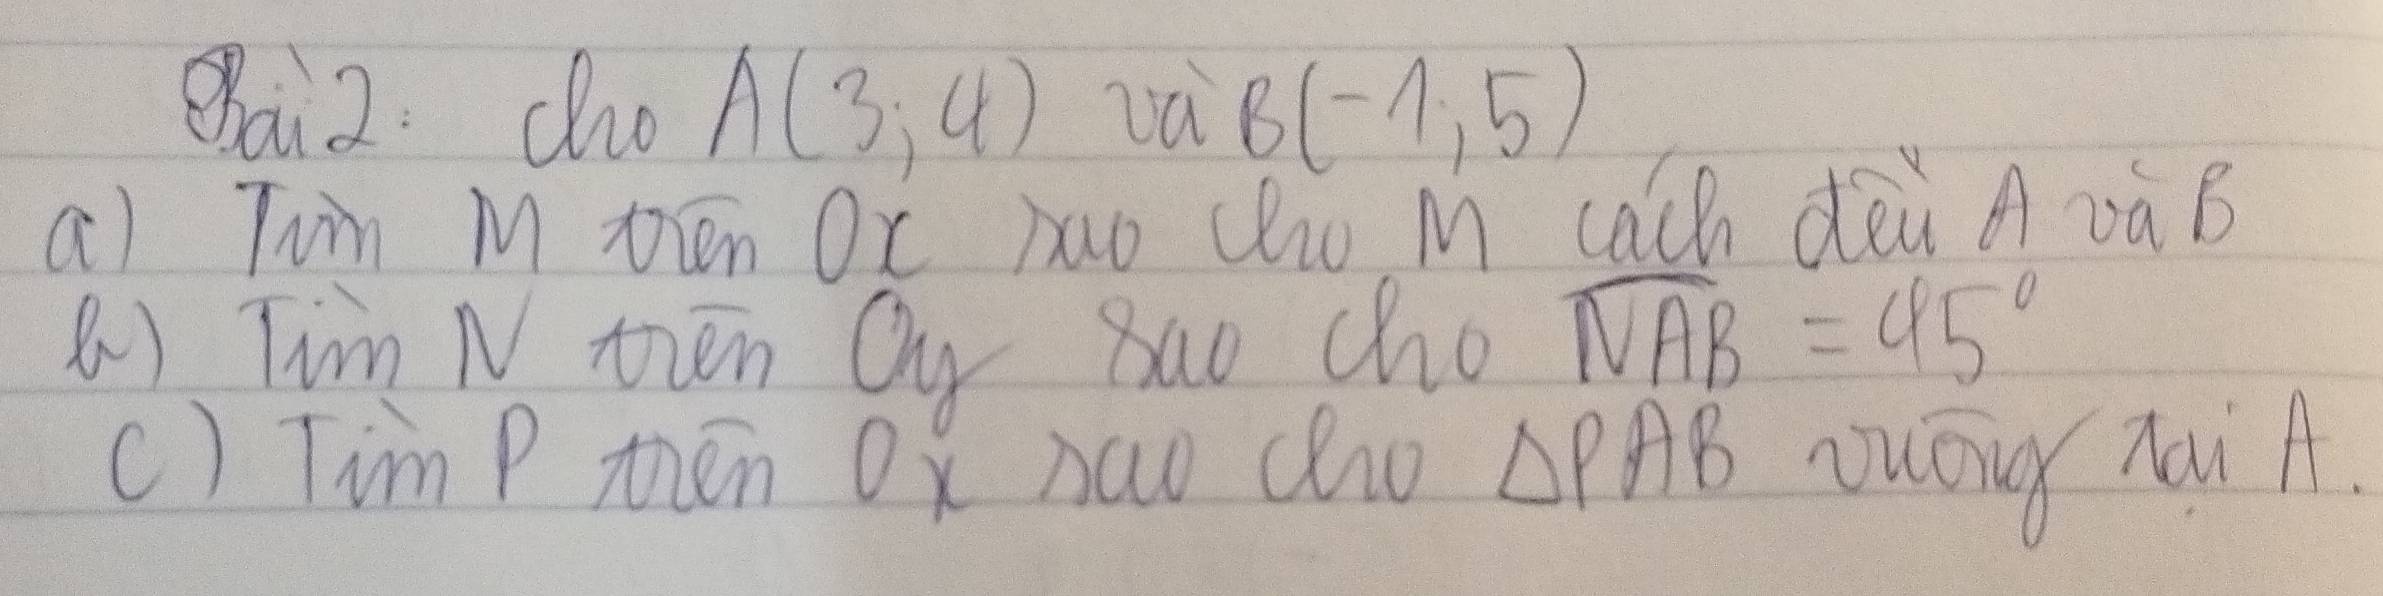 Bài 2: cho A(3; 4) và B(-1; 5)
a) Tìm M trên Ox sao cho M cách đều A và B
b) Tìm N trên Oy sao cho NAB = 45°
c) Tìm P trên Ox sao cho ΔPAB vuông tại A.